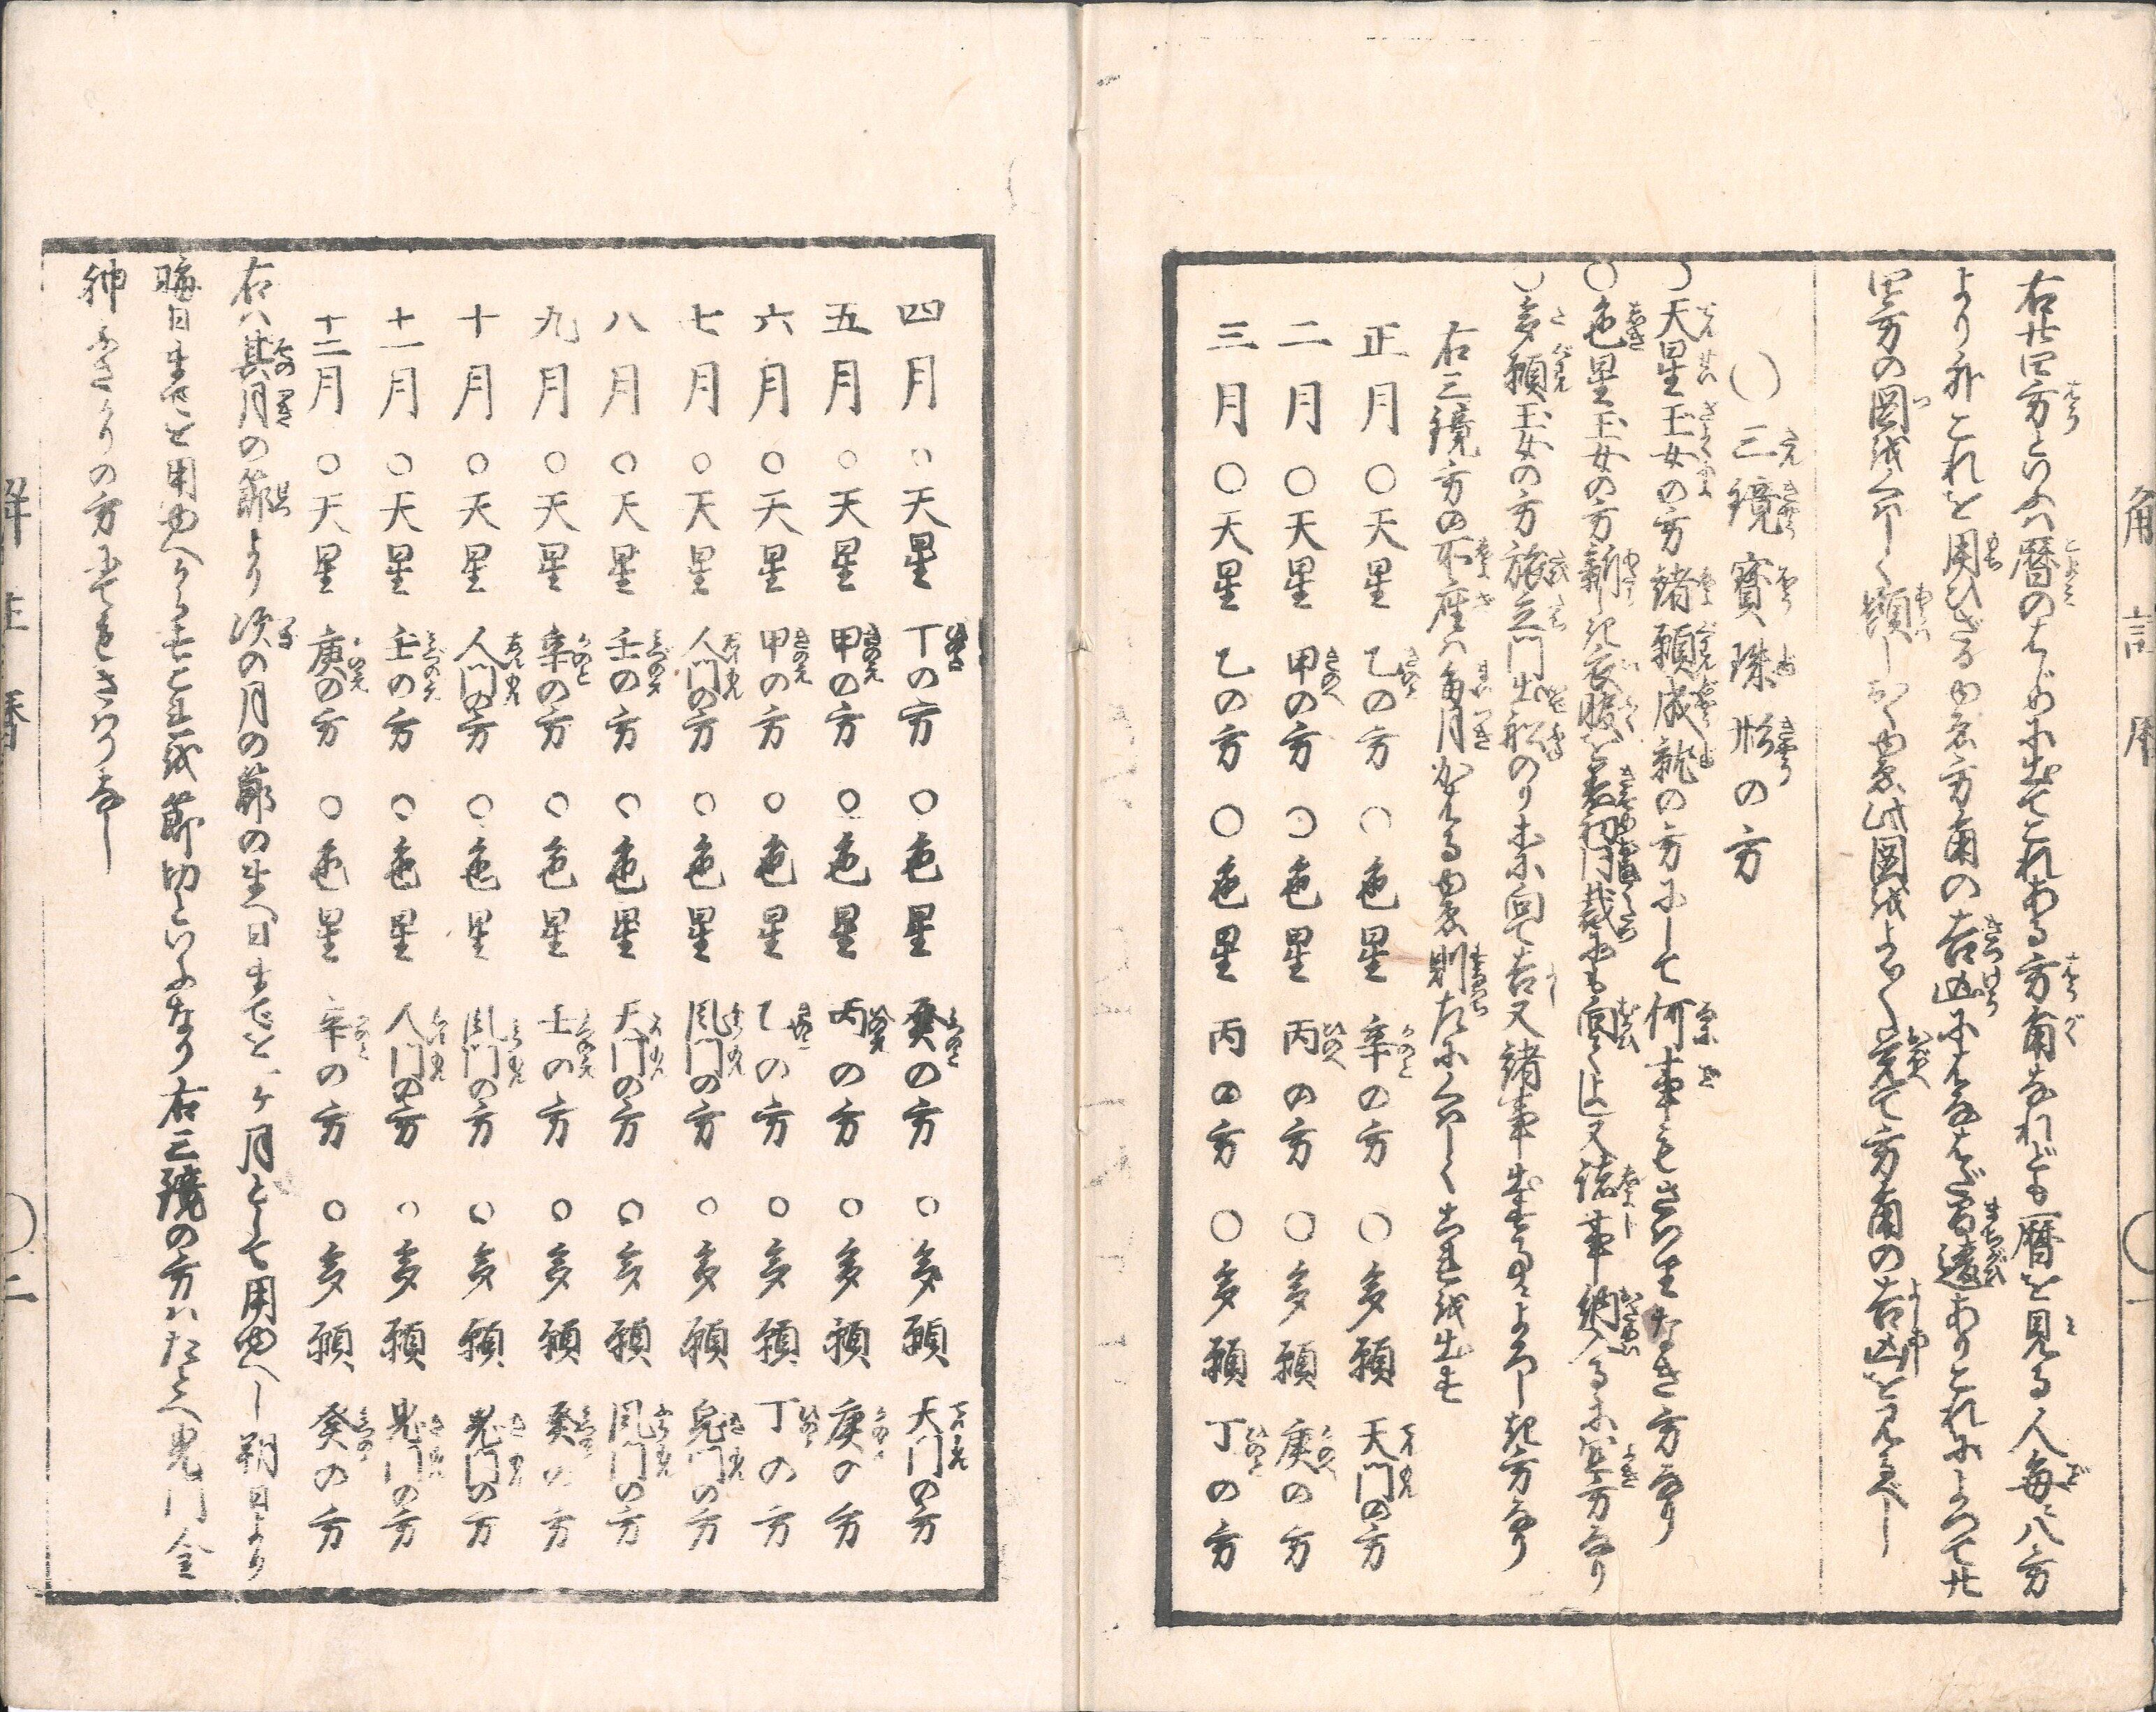 右廿四方といふハ暦のはじめに出てこれある方角なれども暦を見る人毎に八方
より外これを用ひざるゆゑ方角の吉凶にはなはだ間違ありこれによつて廿
四方の図を印し顕しおくゆゑ此図をよく〳〵覚て方角の吉凶を見るべし
〇三鏡寳珠形の方
〇天星玉女の方諸願成就の方にして何事もさハりなき方なり
〇色星玉女の方新き衣服を着初門裁にも向てよし又諸事納入るに宜方なり
〇多願玉女の方旅立門出船のりホに向て吉又諸事出するによろしき方なり
右三鏡方の所座ハ毎月かはるゆゑ則左に印しこれを出す
正月〇天星乙の方〇色星辛の方〇多願天門の方
二月〇天星甲の方〇色星丙の方〇多願庚の方
三月〇天星乙の方〇色星丙の方〇多願丁の方
四月〇天星丁の方〇色星癸の方〇多願天門の方
五月〇天星甲の方〇色星丙の方〇多願庚の方
六月〇天星甲の方〇色星乙の方〇多願丁の方
七月〇天星人門の方〇色星風門の方〇多願鬼門の方
八月〇天星壬の方〇色星天門の方〇多願風門の方
九月〇天星辛の方〇色星壬の方〇多願癸の方
十月〇天星人門の方〇色星風門の方〇多願鬼門の方
十一月〇天星壬の方〇色星人門の方〇多願鬼門の方
十二月〇天星庚の方〇色星辛の方〇多願癸の方
右ハ其月の節より次の月の節の先へ日までを一ケ月として用ゆべし朔日より
晦日までを用ゆべからずこれを節切といふなり右三鏡の方ハたとへ鬼門金
神ふさがりの方にてもさハりなし
〇二